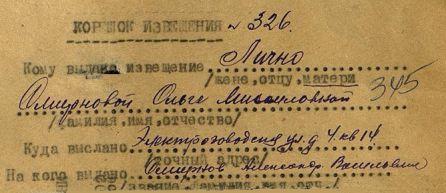 КОРЕШОК ИЗВЕЩЕНИЯ № 326.
Кому выдана извещение Лично
/жене, отцу, матери
Смирновой Ольге 345
/фамилия, имя, отчество/
Куда выслано Электрозаводская ул. д 4 кв 14
/точный адрес/
На кого выдано Смирнов Александр Васильевич